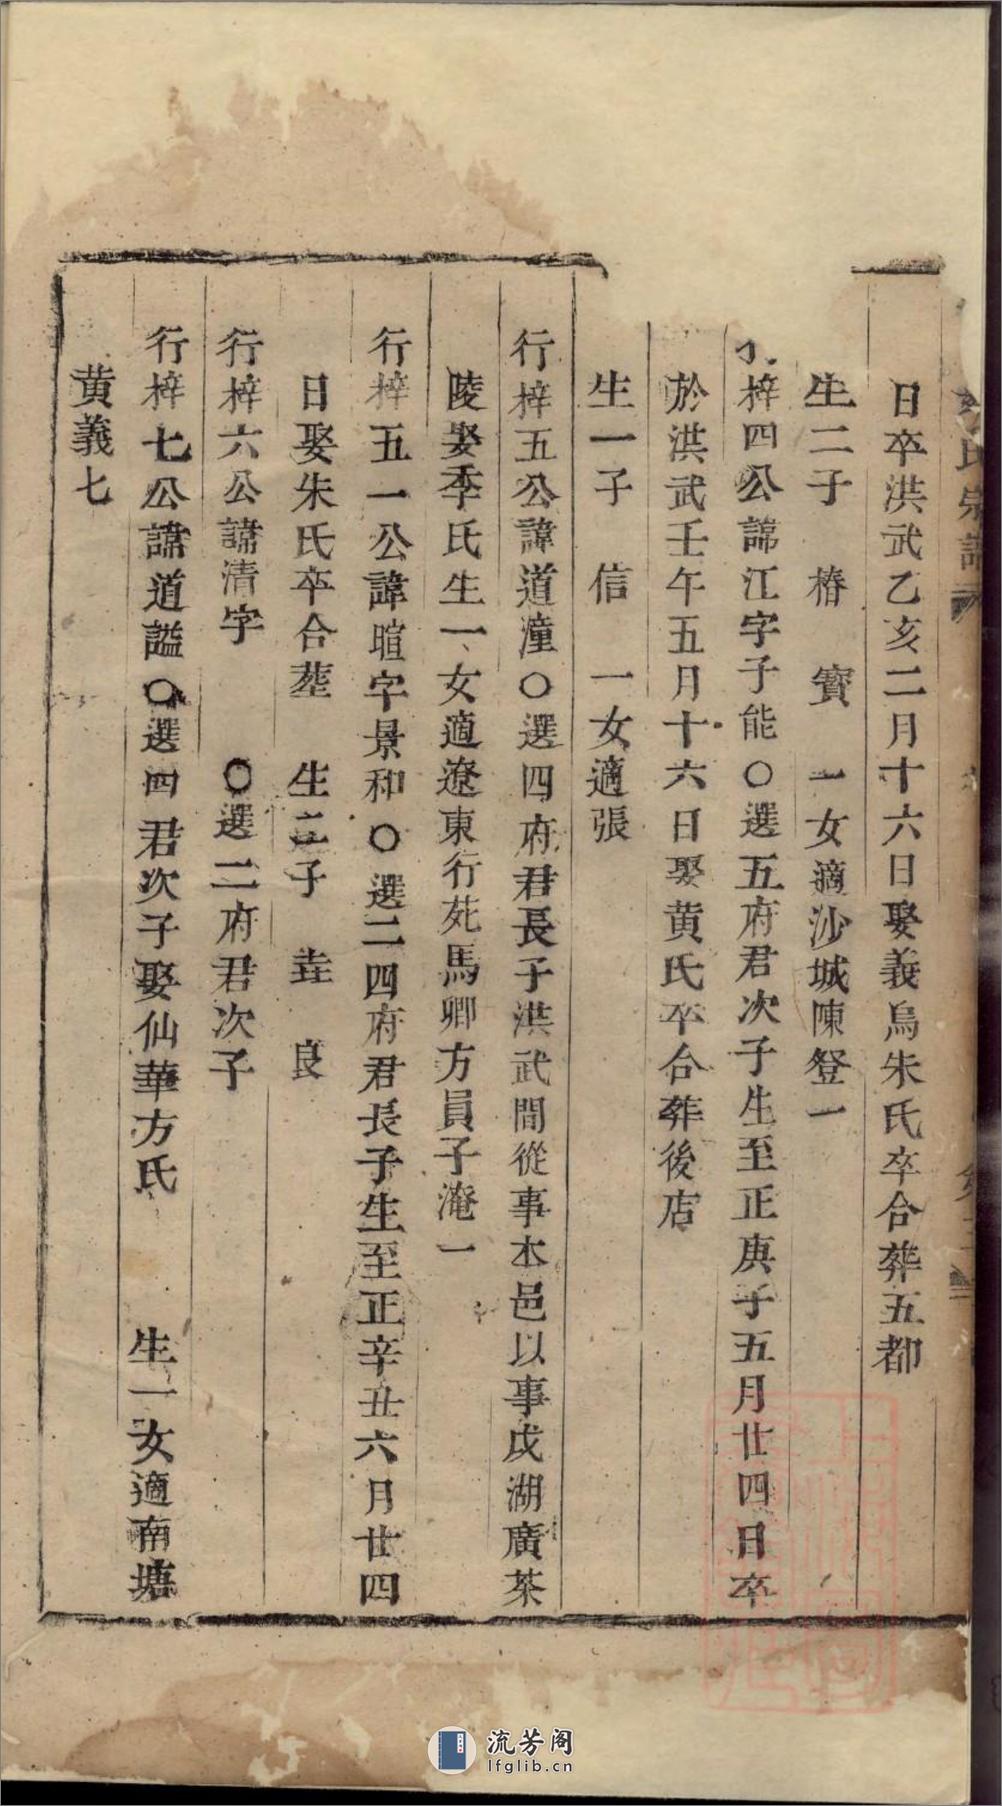 日卒洪武乙亥二月十六日娶義烏朱氏卒合葬五都
生二子 椿 寳 一女適沙城陳登一
行梓四公諱江字子能○選五府君次子生至正庚子五月廿四日卒
於洪武壬午五月十六日娶黄氏卒合葬後店
生一子 信 一女適張
行梓五公諱道潼○選四府君長子洪武間從事本邑以事戍湖廣茶
陵娶季氏生一女適遼東行苑馬卿方員子淹一
行梓五一公諱暄字景和○選二四府君長子生至正辛丑六月廿四
日娶朱氏卒合塟 生二子 垚 良
行梓六公諱清字 ○選二府君次子
行梓七公諱道謚○選四君次子娶仙華方氏 生一女適南塘
黄義七
流芳阁
lfglib.cn